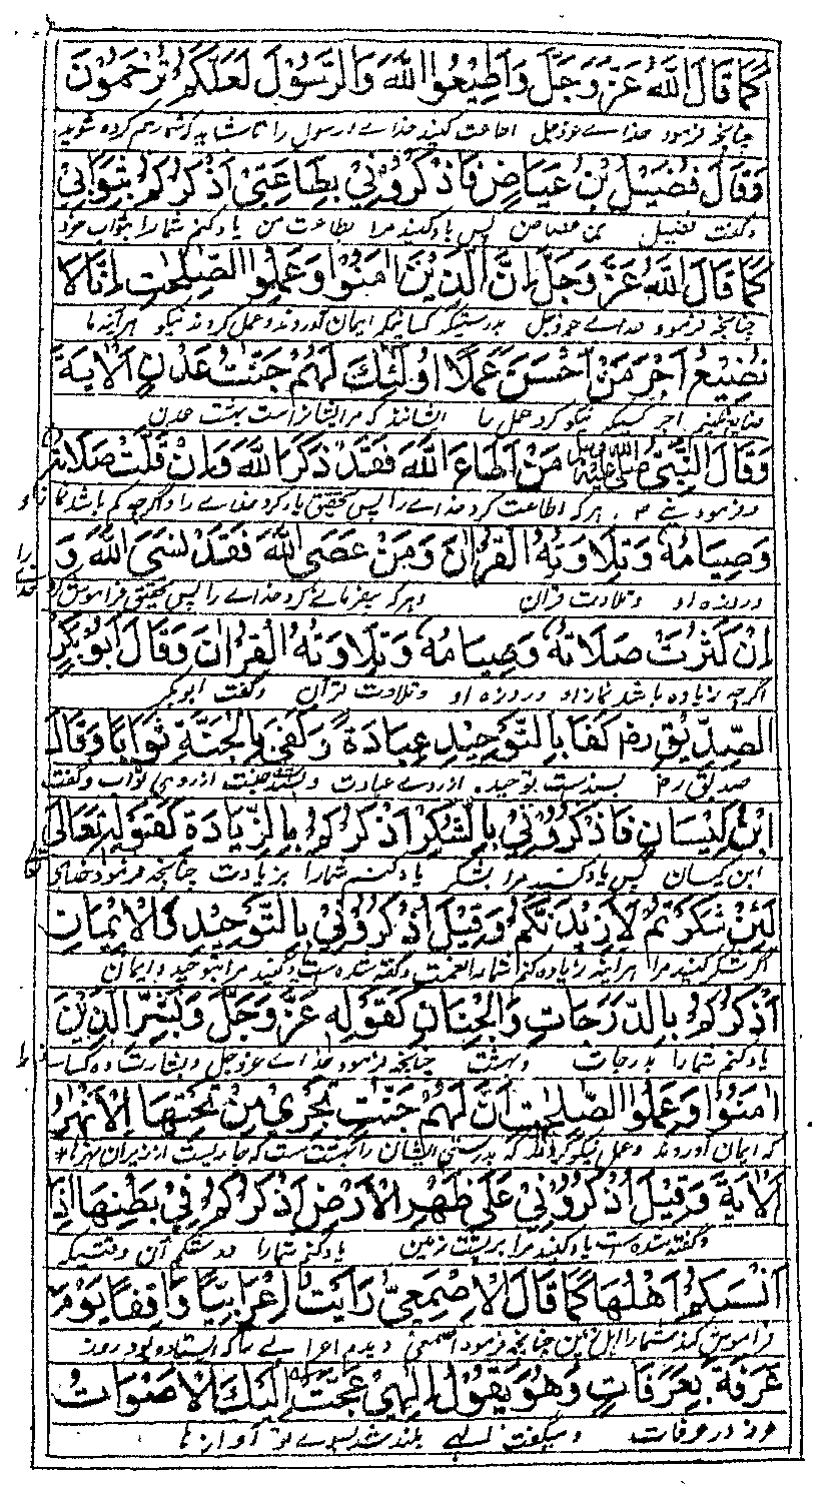 كَمَا قَالَ اللهُ عَزَّ وَجَلَّ وَاَطِيْعُوا اللهَ وَالرَّسُوْلَ لَعَلَّكُمْ تُرْحَمُوْنَ
چنانچہ فرمود خداے عزوجل اطاعت کنید خداے و رسول را تا شما رحم کردہ شوید
وَقَالَ فُضَيْلُ بْنُ عَيَاضٍ فَاذْكُرُوْنِيْ بِطَاعَتِيْ اَذْكُرْكُمْ بِثَوَابِيْ
و گفت فضیل بن عیاض پس یاد کنید مرا بطاعت من یاد کنم شما را بثواب خود
كَمَا قَالَ اللهُ عَزَّ وَجَلَّ اِنَّ الَّذِيْنَ اٰمَنُوْا وَعَمِلُوا الصّٰلِحٰتِ اِنَّا لَا
چنانچہ فرمود خداے عزوجل بدرستیکہ کسانیکہ ایمان آوردند و عمل کردند نیکو ہر آئنہ ما
نُضِيْعُ اَجْرَ مَنْ اَحْسَنَ عَمَلًا اُولٰٓئِكَ لَهُمْ جَنّٰتُ عَدْنٍ اَلْاٰيَةَ
ضایع نکنیم اجر کسیکہ نیکو کرد عمل را ایشانند کہ مر ایشانرا است بہشت عدن
وَقَالَ النَّبِيُّ صلى الله عليه وسلم مَنْ اَطَاعَ اللهَ فَقَدْ ذَكَرَ اللهَ وَاِنْ قَلَّتْ صَلَاتُهُ
و فرمود نبی م ہر کہ اطاعت کرد خداے را پس تحقیق یاد کرد خداے را و اگرچہ کم باشد نماز او
وَصِيَامُهُ وَتِلَاوَتُهُ الْقُرْاٰنَ وَمَنْ عَصَى اللهَ فَقَدْ نَسِيَ اللهَ وَ
و روزہ او و تلاوت قرآن و ہر کہ بیفرمانی کرد خداے را پس تحقیق فراموش کرد خدا را
اِنْ كَثُرَتْ صَلَاتُهُ وَصِيَامُهُ وَتِلَاوَتُهُ الْقُرْاٰنَ وَقَالَ اَبُوْ بَكْرٍ
اگرچہ زیادہ باشد نماز او و روزہ او و تلاوت قرآن و گفت ابوبکر
الصِّدِّيْقِ رض كَفَا بِالتَّوْحِيْدِ عِبَادَةً وَّكَفٰى بِالْجَنَّةِ ثَوَابًا وَقَالَ
صدیق رض بسندست توحید از روے عبادت و بسند جنت از روی ثواب و گفت
ابْنُ كَيْسَانٍ فَاذْكُرُوْنِيْ بِالشُّكْرِ اَذْكُرْكُمْ بِالزِّيَادَةِ كَقَوْلِهٖ تَعَالٰى
ابن کیسان پس یاد کنید مرا بشکر یاد کنم شما را بزیادت چنانچہ فرمود خدای تعالی
لَئِنْ شَكَرْتُمْ لَاَزِيْدَنَّكُمْ وَقِيْلَ اُذْكُرُوْنِيْ بِالتَّوْحِيْدِ وَالْاِيْمَانِ
اگر شکر کنید مرا ہر آئنہ زیادہ کنم شما را نعمت و گفتہ شدہ است یاد کنید مرا بتوحید و ایمان
اَذْكُرْكُمْ بِالدَّرَجَاتِ وَالْجِنَانِ كَقَوْلِهٖ عَزَّ وَجَلَّ وَبَشِّرِ الَّذِيْنَ
یاد کنم شما را بدرجات و بہشت چنانچہ فرمود خداے عزوجل و بشارت دہ کسانرا
اٰمَنُوْا وَعَمِلُوا الصّٰلِحٰتِ اَنَّ لَهُمْ جَنّٰتٍ تَجْرِيْ مِنْ تَحْتِهَا الْاَنْهٰرُ
کہ ایمان آوردند و عمل نیکو کردند کہ بدرستی ایشان را بہشت ست کہ جاریست از زیران نہرہا
اَلْاٰيَةَ وَقِيْلَ اُذْكُرُوْنِيْ عَلٰى ظَهْرِ الْاَرْضِ اَذْكُرْكُمْ فِيْ بَطْنِهَا اِذَا
و گفتہ شدہ است یاد کنید مرا بر پشت زمین یاد کنم شما را در شکم آن وقتیکہ
اَنْسَكُمْ اَهْلُهَا كَمَا قَالَ الْاَصْمَعِيُّ رَاَيْتُ اَعْرَابِيًّا وَاقِفًا يَوْمَ
فراموش کند شما را اہل زمین چنانچہ فرمود اصمعی دیدم اعرابی را کہ ایستادہ بود روز
عَرَفَةَ بِعَرَفَاتٍ وَهُوَ يَقُوْلُ اِلٰهِيْ عَجَّتْ اِلَيْكَ الْاَصْوَاتُ
عرفہ در عرفات و میگفت الہی بلند شد بسوے تو آوازہا